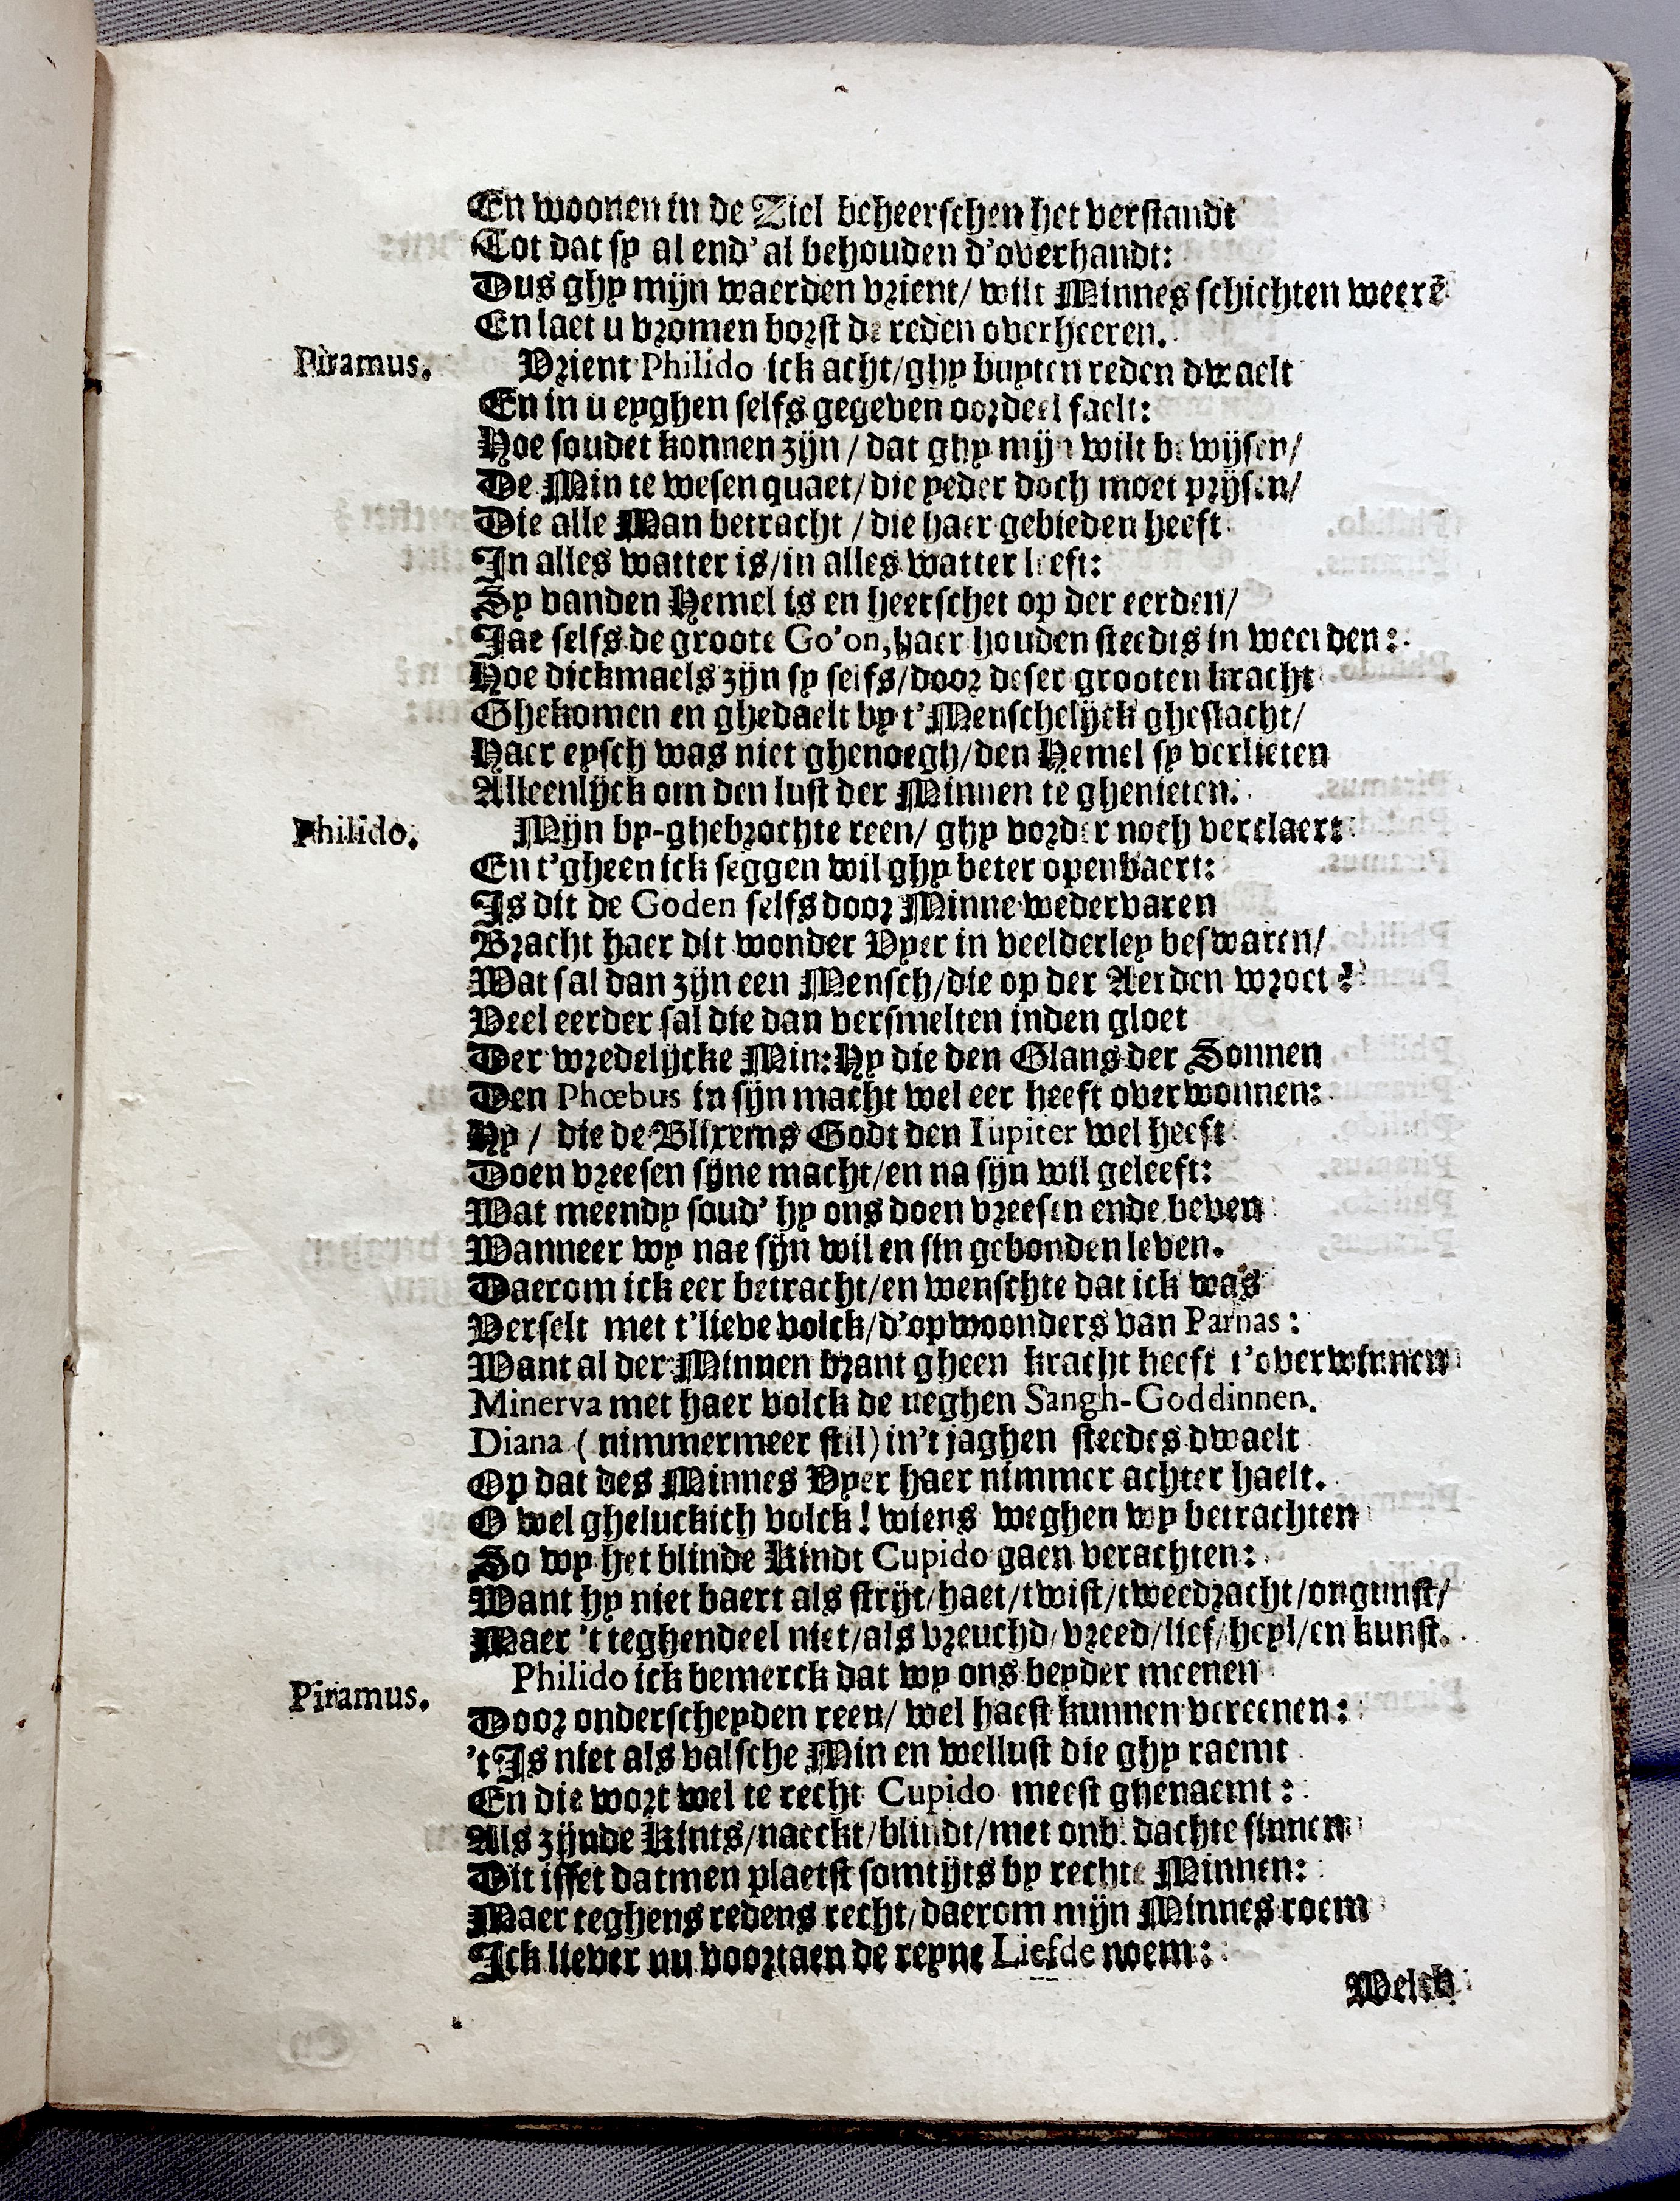 En woonen in de Ziel beheerschen het verstandt
Tot dat sy al end' al behouden d'overhandt:
Dus ghy mijn waerden vrient/ wilt Minnes schichten weerē
En laet u vromen borst de reden overheeren.
Piramus. Vrient Philido ick acht/ghy buyten reden dwaelt
En in u eyghen selfs gegeven oordeel faelt:
Hoe soudet konnen zijn / dat ghy mijn wilt bewijsen/
De Min te wesen quaet/ die yeder doch moet prijsen/
Die alle Man betracht / die haer gebieden heeft
In alles watter is/in alles watter leeft:
Sy vanden Hemel is en heerschet op der eerden/
Jae selfs de groote Go'on, haer houden steedts in weerden:
Hoe dickmaels zijn sy selfs/door deser grooten kracht
Ghekomen en ghedaelt by t'Menschelijck gheslacht/
Haer eysch was niet ghenoegh/den Hemel sy verlieten
Alleenlijck om den lust der Minnen te ghenieten.
Philido. Mijn by-ghebrochte reen/ ghy vorder noch verclaert
En t'gheen ick seggen wil ghy beter openbaert:
Is dit de Goden selfs door Minne wedervaren
Bracht haer dit wonder Vyer in veelderley beswaren/
Wat sal dan zijn een Mensch/die op der Aerden wroet?
Veel eerder sal die dan versmelten inden gloet
Der wredelijcke Min: Hy die den Glans der Sonnen
Den Phœbus in sijn macht wel eer heeft overwonnen:
Hy / die de Blixems Godt den Iupiter wel heeft
Doen vreesen sijne macht/en na sijn wil geleeft:
Wat meendy soud' hy ons doen vreesen ende beven
Wanneer wy nae sijn wil en sin gebonden leven.
Daerom ick eer betracht/en wenschte dat ick was
Verselt met t'lieve volck/d'opwoonders van Parnas:
Want al der Minnen brant gheen kracht heeft t'overwinnen
Minerva met haer volck de neghen Sangh-Goddinnen.
Diana (nimmermeer stil) in't jaghen steedts dwaelt
Op dat des Minnes Vyer haer nimmer achter haelt.
O wel gheluckich volck! wiens weghen wy betrachten
So wy het blinde Kindt Cupido gaen verachten:
Want hy niet baert als strijt/haet/twist/tweedracht/ongunst/
Maer 't teghendeel niet/als vreuchd/vreed/lief/heyl/en kunst.
Piramus. Philido ick bemerck dat wy ons beyder meenen
Door onderscheyden reen/ wel haest kunnen vereenen:
't Is niet als valsche Min en wellust die ghy raemt
En die wort wel te recht Cupido meest ghenaemt:
Als zijnde Kints/naeckt/blindt/met onb. dachte sinnen
Dit isset datmen plaetst somtijts by rechte Minnen:
Maer teghens redens recht/daerom mijn Minnes roem
Ick liever nu voortaen de reyne Liefde noem:
Welck